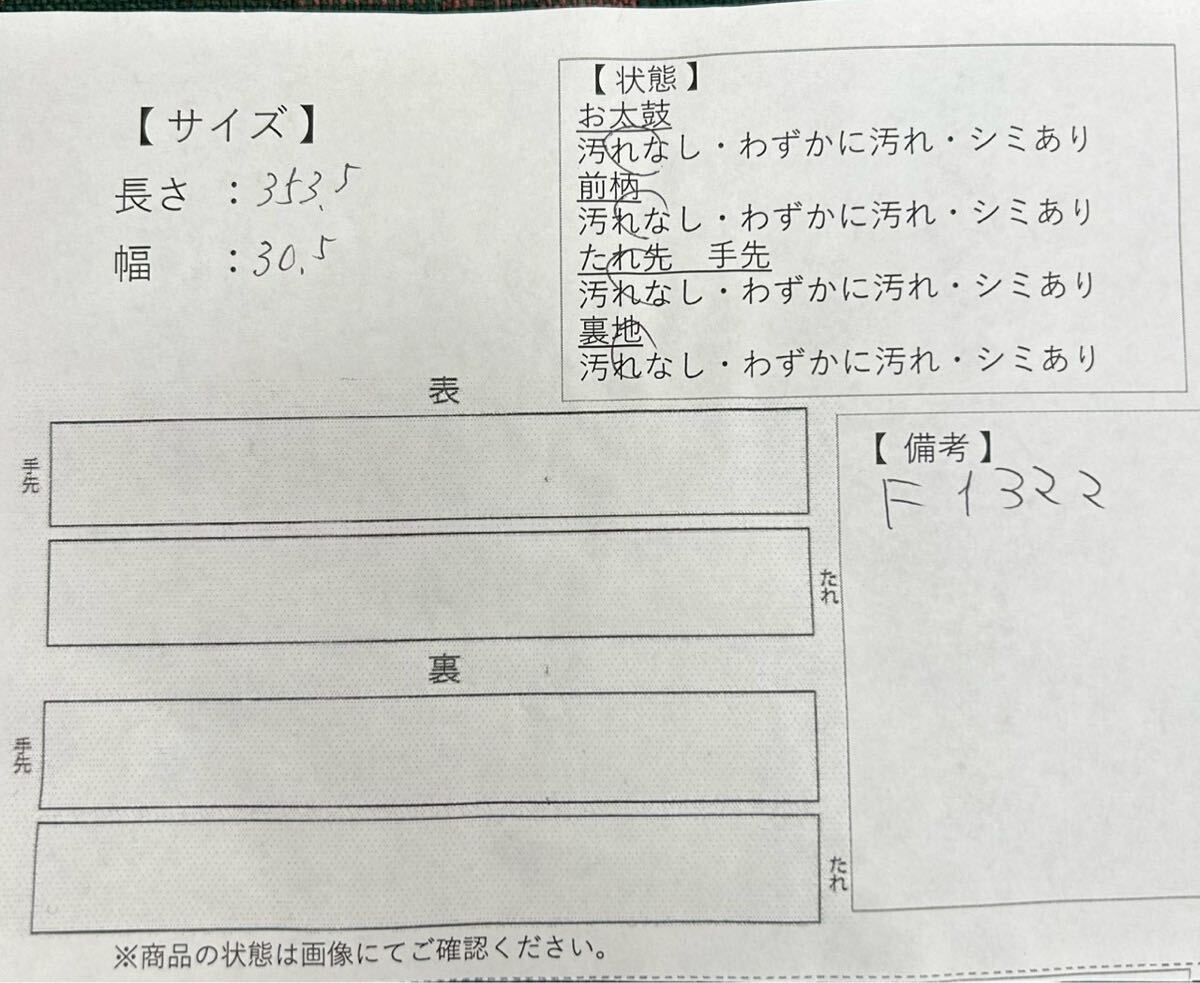 【サイズ】
長さ ：353.5
幅 ：30.5
【状態】
お太鼓
汚れなし・わずかに汚れ・シミあり
前柄
汚れなし・わずかに汚れ・シミあり
たれ先 手先
汚れなし・わずかに汚れ・シミあり
裏地
汚れなし・わずかに汚れ・シミあり
表
手先
たれ
裏
手先
たれ
【備考】
F1322
※商品の状態は画像にてご確認ください。